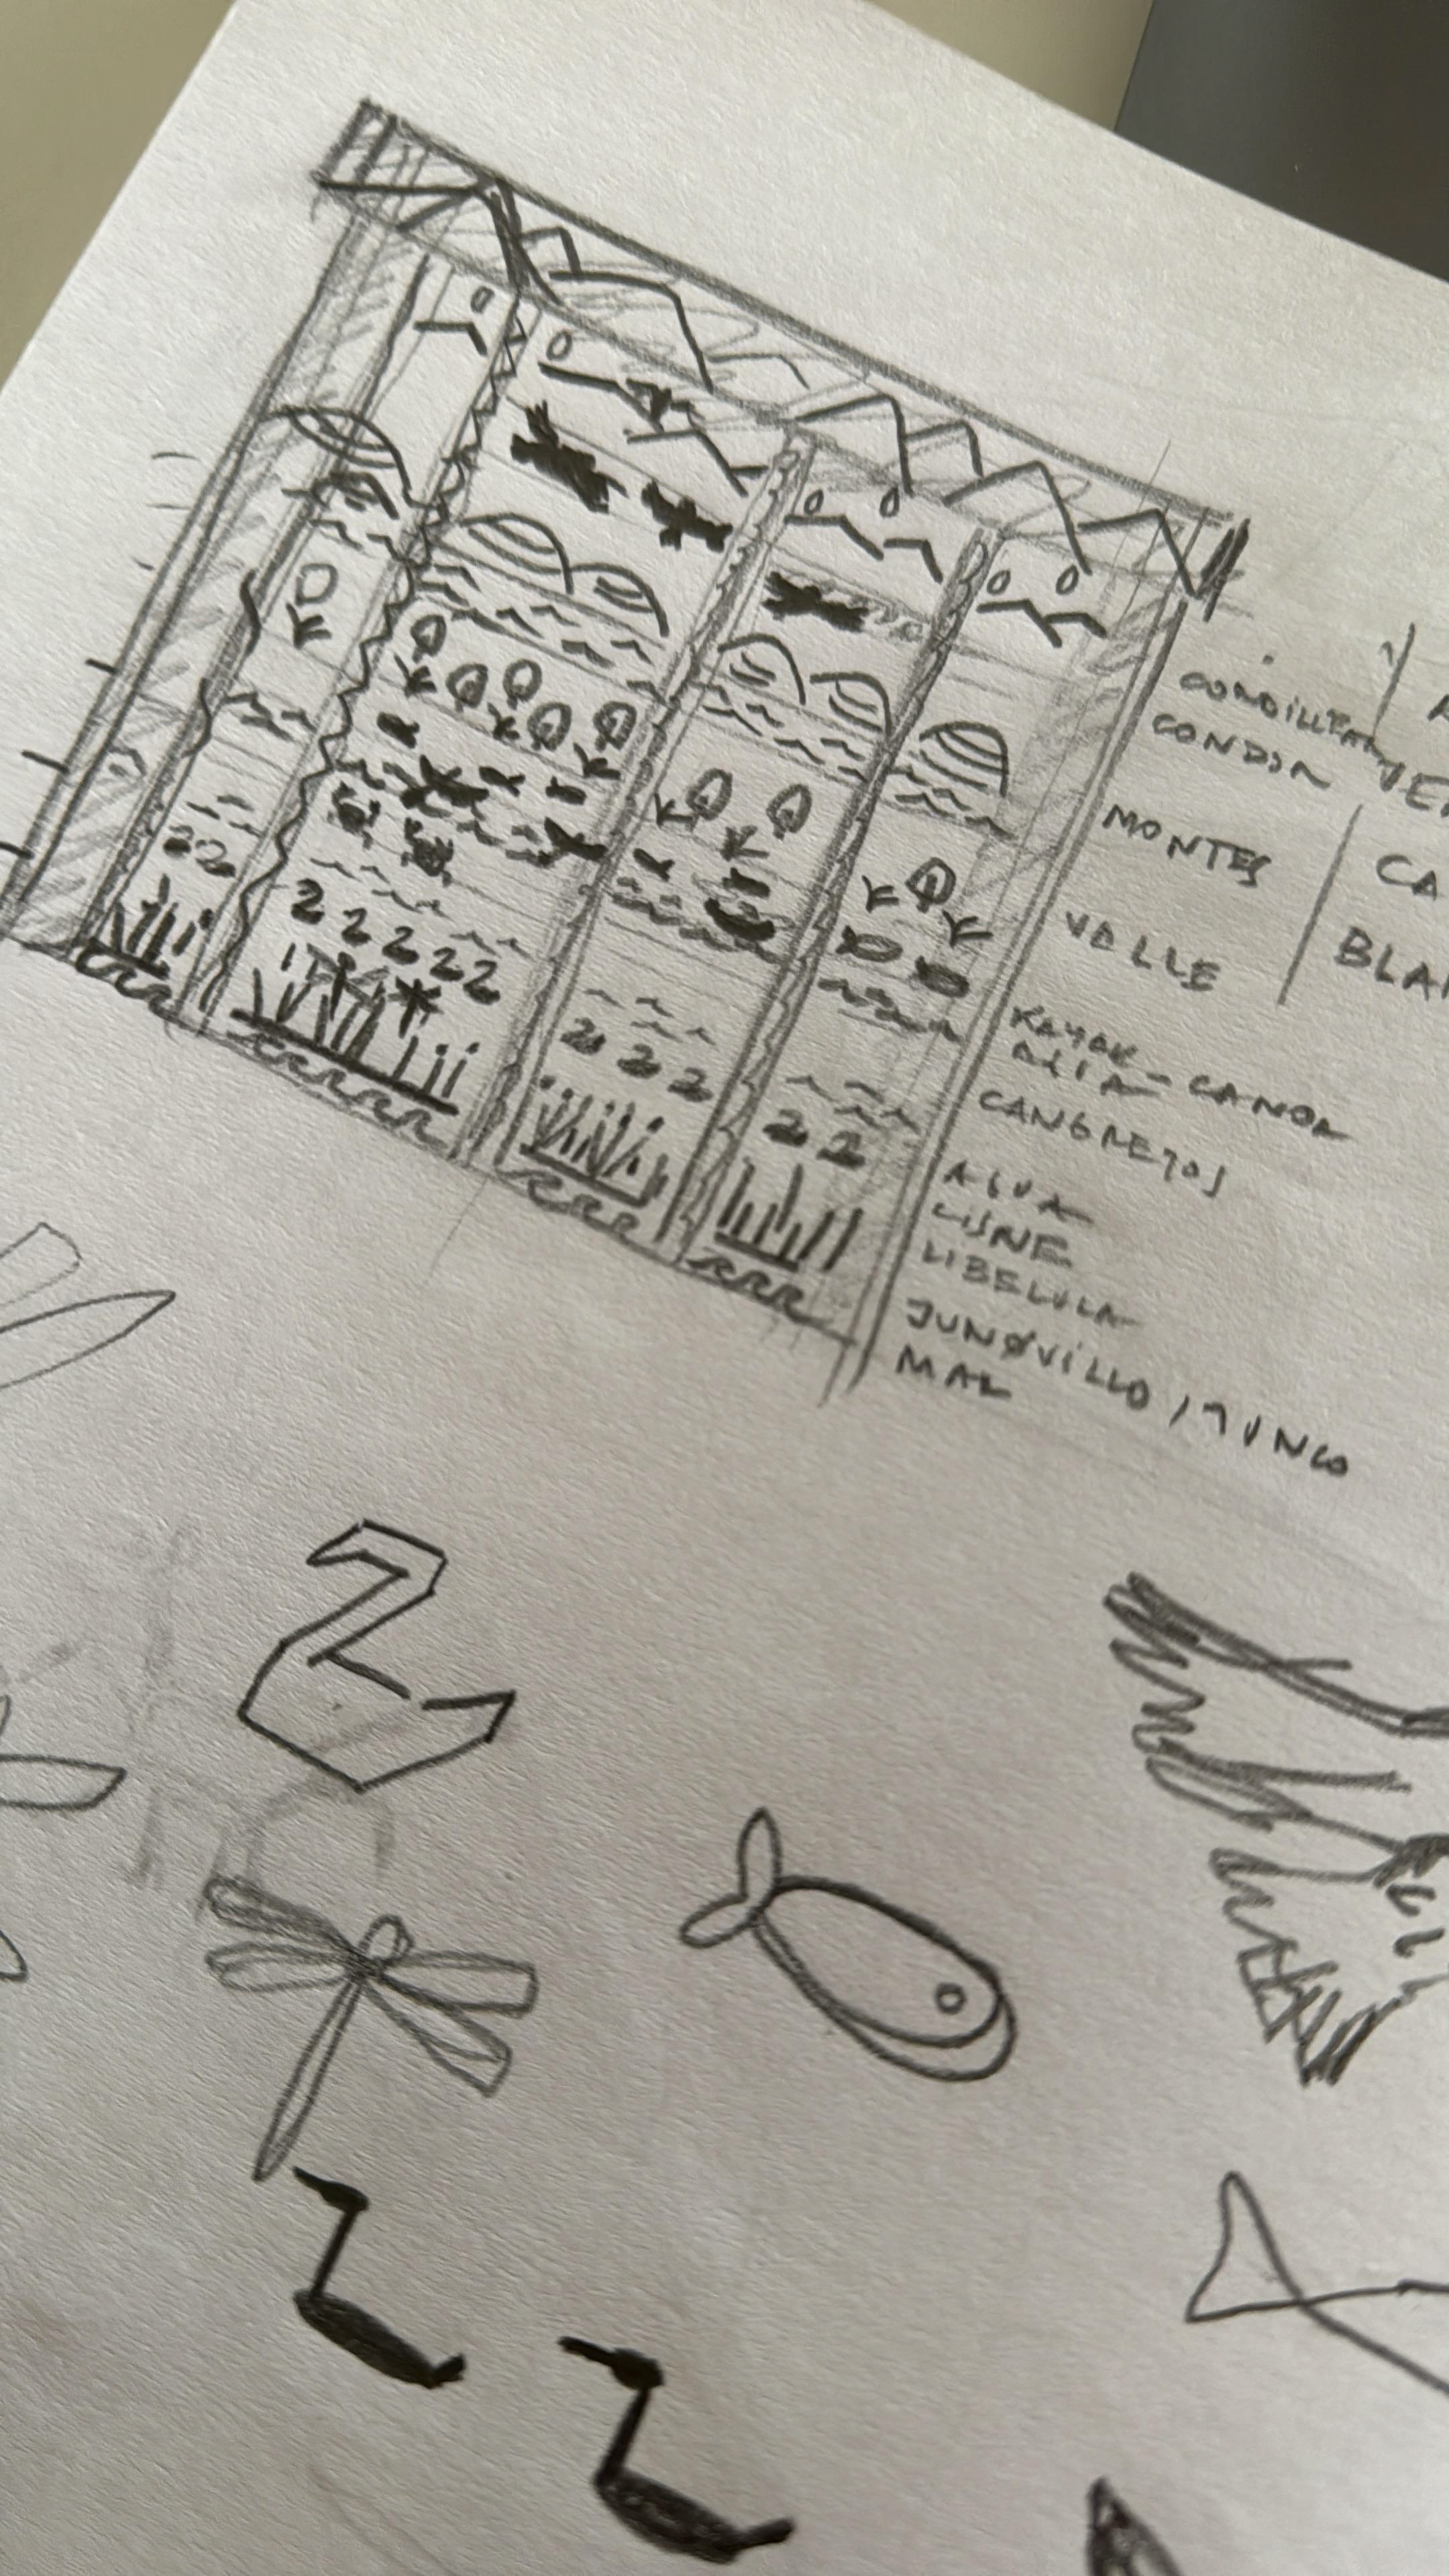 CORDILLERA
CONDOR
MONTES
VALLE
CA
BLA
KAYAK - CANOA
CANGREJOS
AGUA
CISNE
LIBELULA
JUNQUILLO / JUNCO
MAR